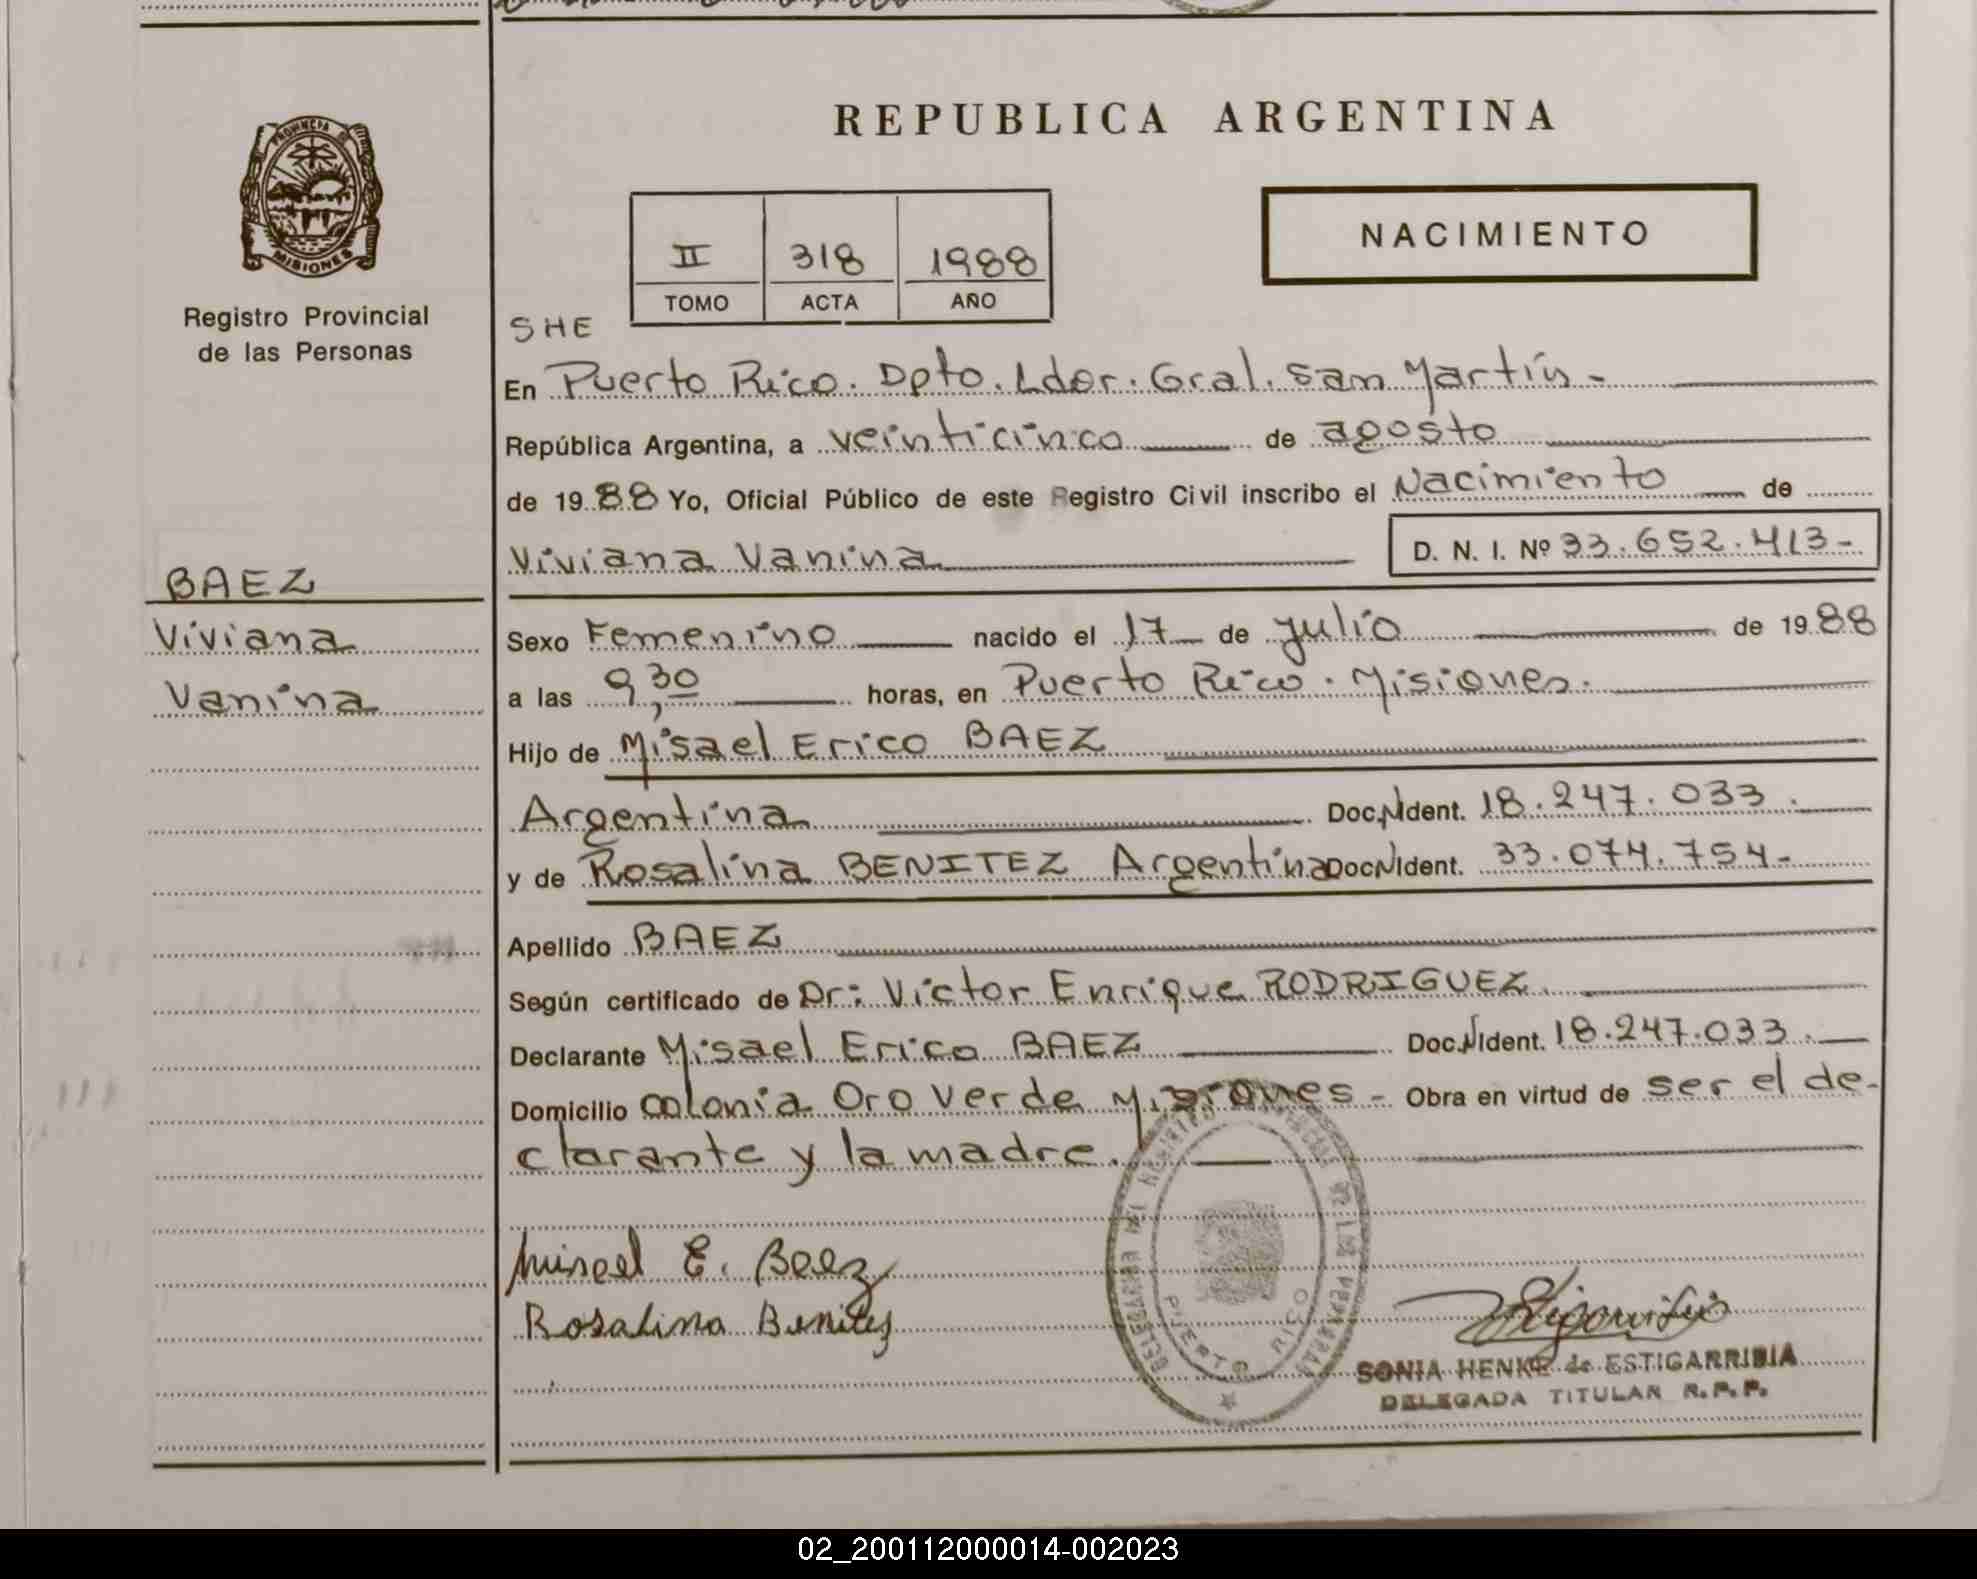 PROVINCIA DE
MISIONES
Registro Provincial
de las Personas
BAEZ
Viviana
Vanina
REPUBLICA ARGENTINA
II 318 1988
TOMO ACTA AÑO
NACIMIENTO
SHE
En Puerto Rico. Dpto. Ldor. Gral. San Martín.-
República Argentina, a veinticinco de agosto
de 1988 Yo, Oficial Público de este Registro Civil inscribo el Nacimiento de
Viviana Vanina D. N. I. Nº 33.652.413-
Sexo Femenino nacido el 17 de julio de 1988
a las 9,30 horas, en Puerto Rico. Misiones.
Hijo de Misael Erico BAEZ
Argentina Doc.N.Ident. 18.247.033.
y de Rosalina BENITEZ Argentina Doc.N.Ident. 33.074.754-
Apellido BAEZ
Según certificado de Dr: Victor Enrique RODRIGUEZ.
Declarante Misael Erico BAEZ Doc.N.Ident. 18.247.033.
Domicilio colonia Oro Verde Misiones - Obra en virtud de ser el de-
clarante y la madre.
Misael E. Baez
Rosalina Benitez
PUERTO RICO
SONIA HENKE de ESTIGARRIBIA
DELEGADA TITULAR R. P. P.
02_200112000014-002023